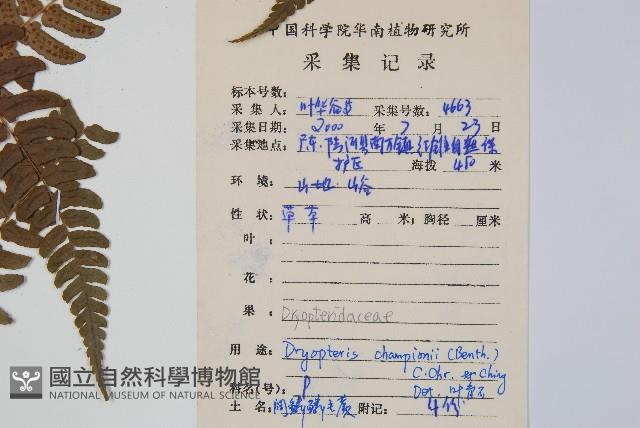 中国科学院华南植物研究所
采集记录
标本号数:
采集人: 叶华谷 采集号数: 4663
采集日期: 2000 年 7 月 23 日
采集地点: 广东.陆河县南万镇 自然保
护区 海拔 480 米
环境: 山地 山谷
性状: 草本 高 米; 胸径 厘米
叶:
花:
果:
Dryopteridaceae
用途: Dryopteris championii (Benth.)
C. Chr. ex Ching
Det. 叶育石
科名(号): P
土名: 阔鳞鳞毛蕨 附记: 4份
國立自然科學博物館
NATIONAL MUSEUM OF NATURAL SCIENCE